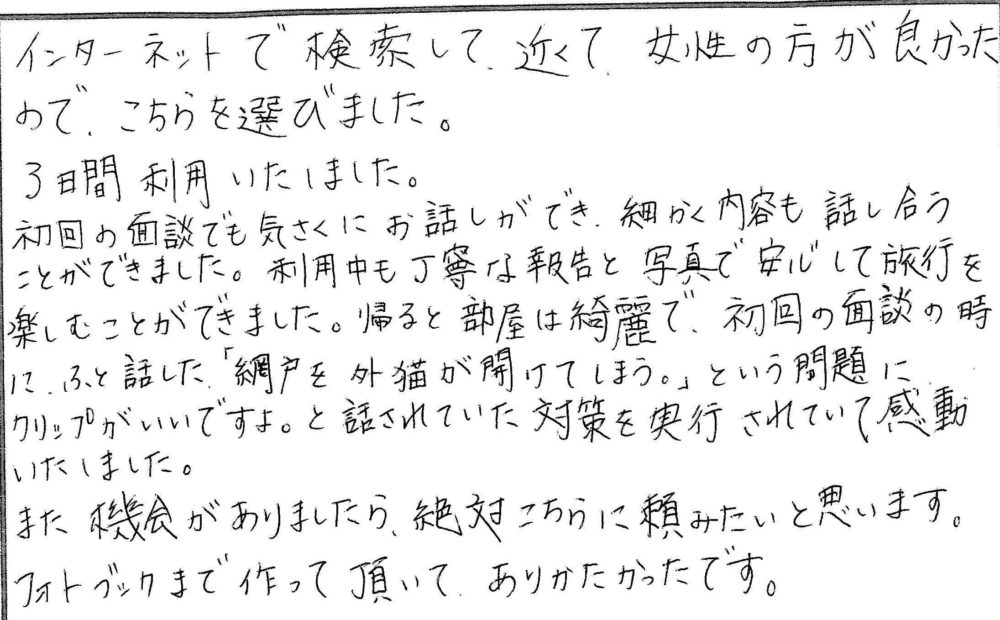 インターネットで検索して、近くて、女性の方が良かった
ので、こちらを選びました。
3日間利用いたしました。
初回の面談でも気さくにお話しができ、細かく内容も話し合う
ことができました。利用中も丁寧な報告と写真で安心して旅行を
楽しむことができました。帰ると部屋は綺麗で、初回の面談の時
に、ふと話した「網戸を外猫が開けてしまう。」という問題に、
クリップがいいですよ。と話されていた対策を実行されていて、感動
いたしました。
また機会がありましたら、絶対こちらに頼みたいと思います。
フォトブックまで作って頂いて、ありがたかったです。